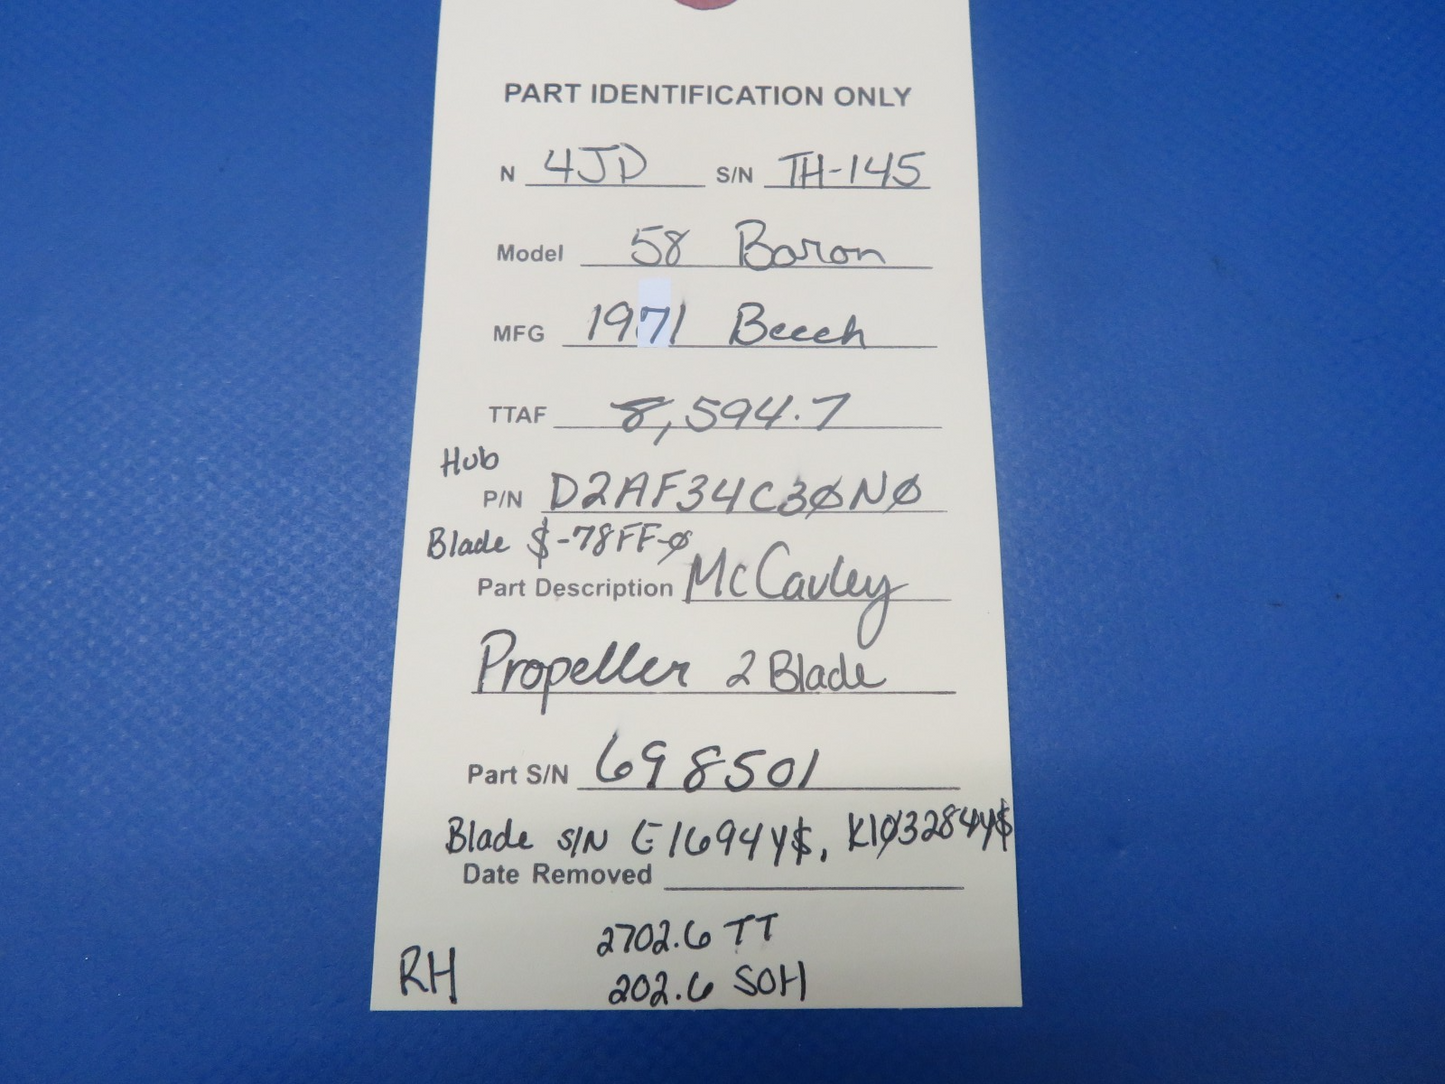 PART IDENTIFICATION ONLY
N 4JD S/N TH-145
Model 58 Baron
MFG 1971 Beech
TTAF 8,594.7
Hub
P/N D2AF34C30N0
Blade $-78FF-0
Part Description McCauley
Propeller 2 Blade
Part S/N 698501
Blade S/N E1694Y$, K103284Y$
Date Removed
2702.6 TT
RH 202.6 SOH